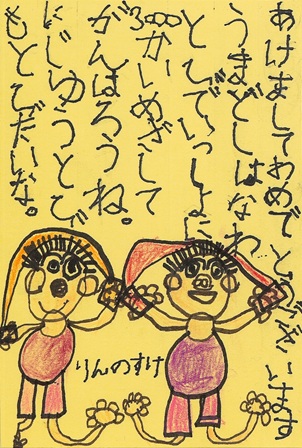 あけましておめでとうございます
うまどしはなわ
とびでいっしょに
3000かいめざして
がんばろうね。
にじゆうとび
もとびたいな。
りんのすけ